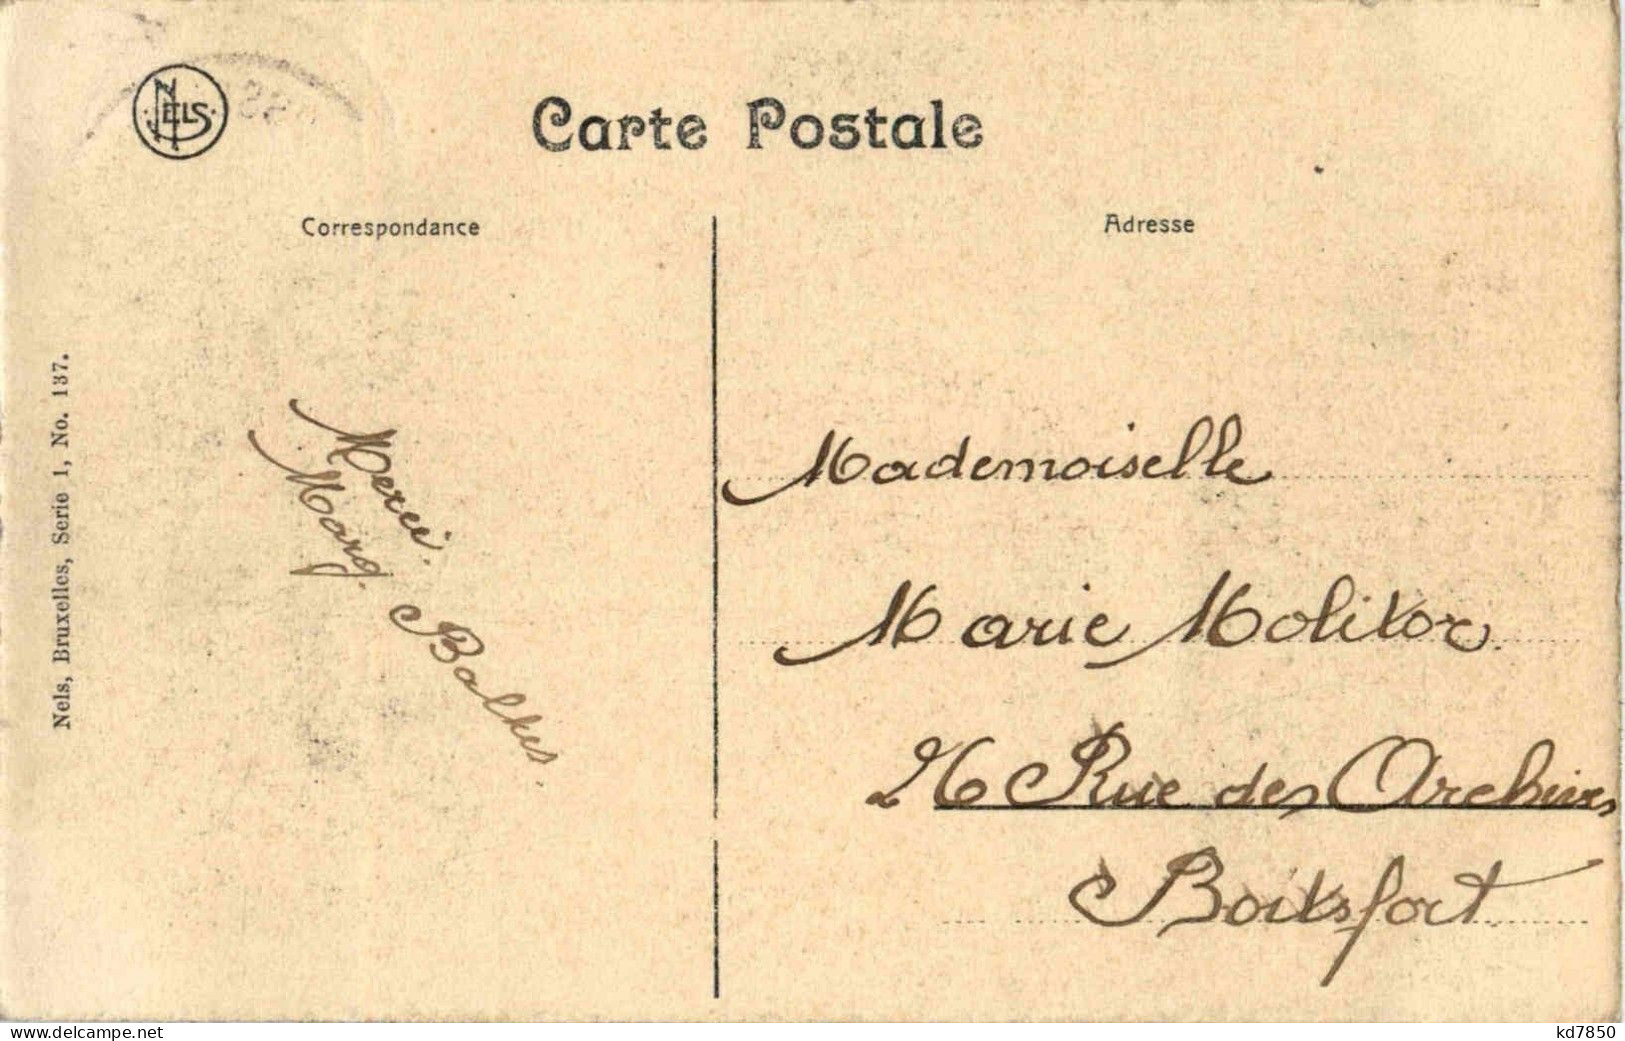 NELS
Carte Postale
Correspondance
Adresse
Nels, Bruxelles, Serie 1, No. 137.
Merci.
Marg. Balkes.
Mademoiselle
Marie Molitor.
26 Rue des Archives
Boitsfort.
www.delcampe.net
kd7850